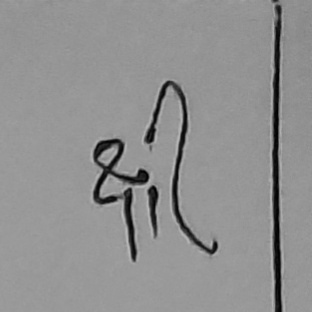 ક્ષી